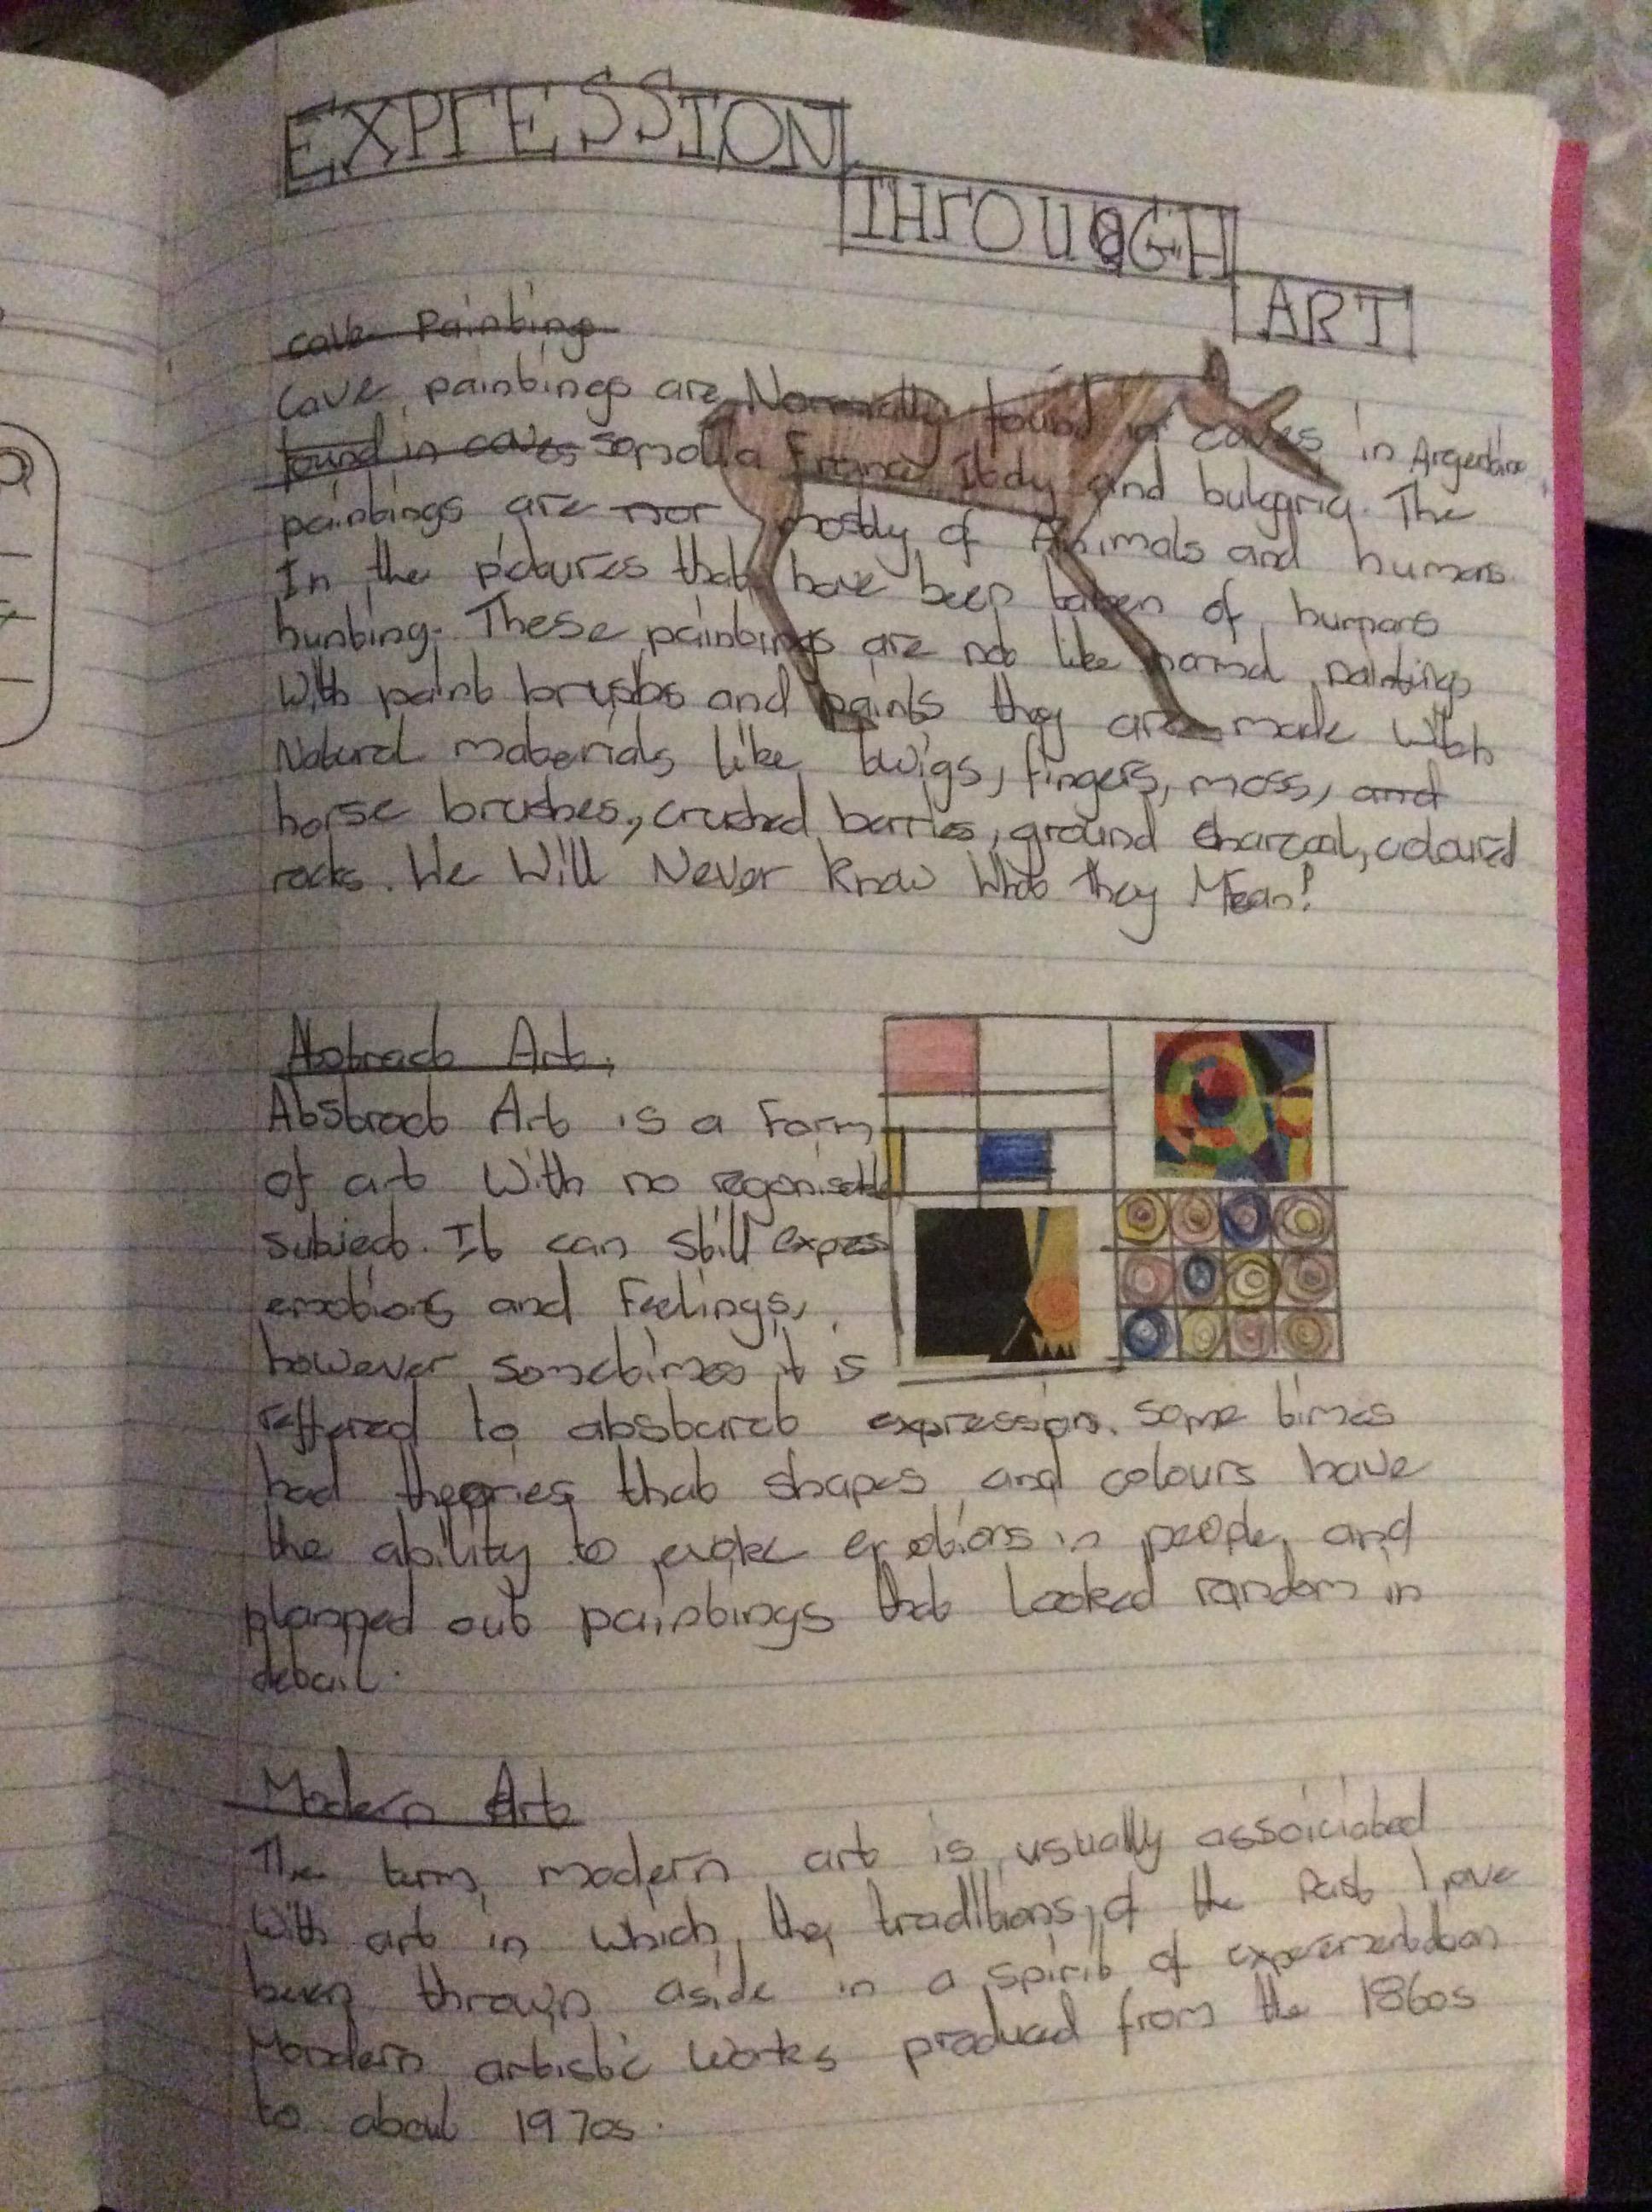 EXPrESSION
THrOUGH
ART
cave Painting
Cave paintings are Normally found in caves in Argentina,
found in caves somalia France Italy and bulgaria. The
paintings are nor mostly of Animals and humans.
In the pictures that have been taken of humans
hunting. These paintings are not like normal paintings
With paint brushes and paints they are made with
Natural materials like twigs, fingers, moss, and
horse brushes, crushed berries, ground charcoal, coloured
rocks. We Will Never know What they Mean!
Abstract Art.
Abstract Art is a Form
of art With no regonisable
subject. It can still express
emotions and Feelings,
however sometimes it is
reffered to abstarct expression. some times
had theories that shapes and colours have
the ability to evoke emotions in people and
planned out paintings that looked random in
detail.
Modern Art
The term modern art is usually assoiciated
With art in which the traditions of the Past have
been thrown aside in a spirit of experementation
Mondern artistic works produced from the 1860s
to about 1970s.